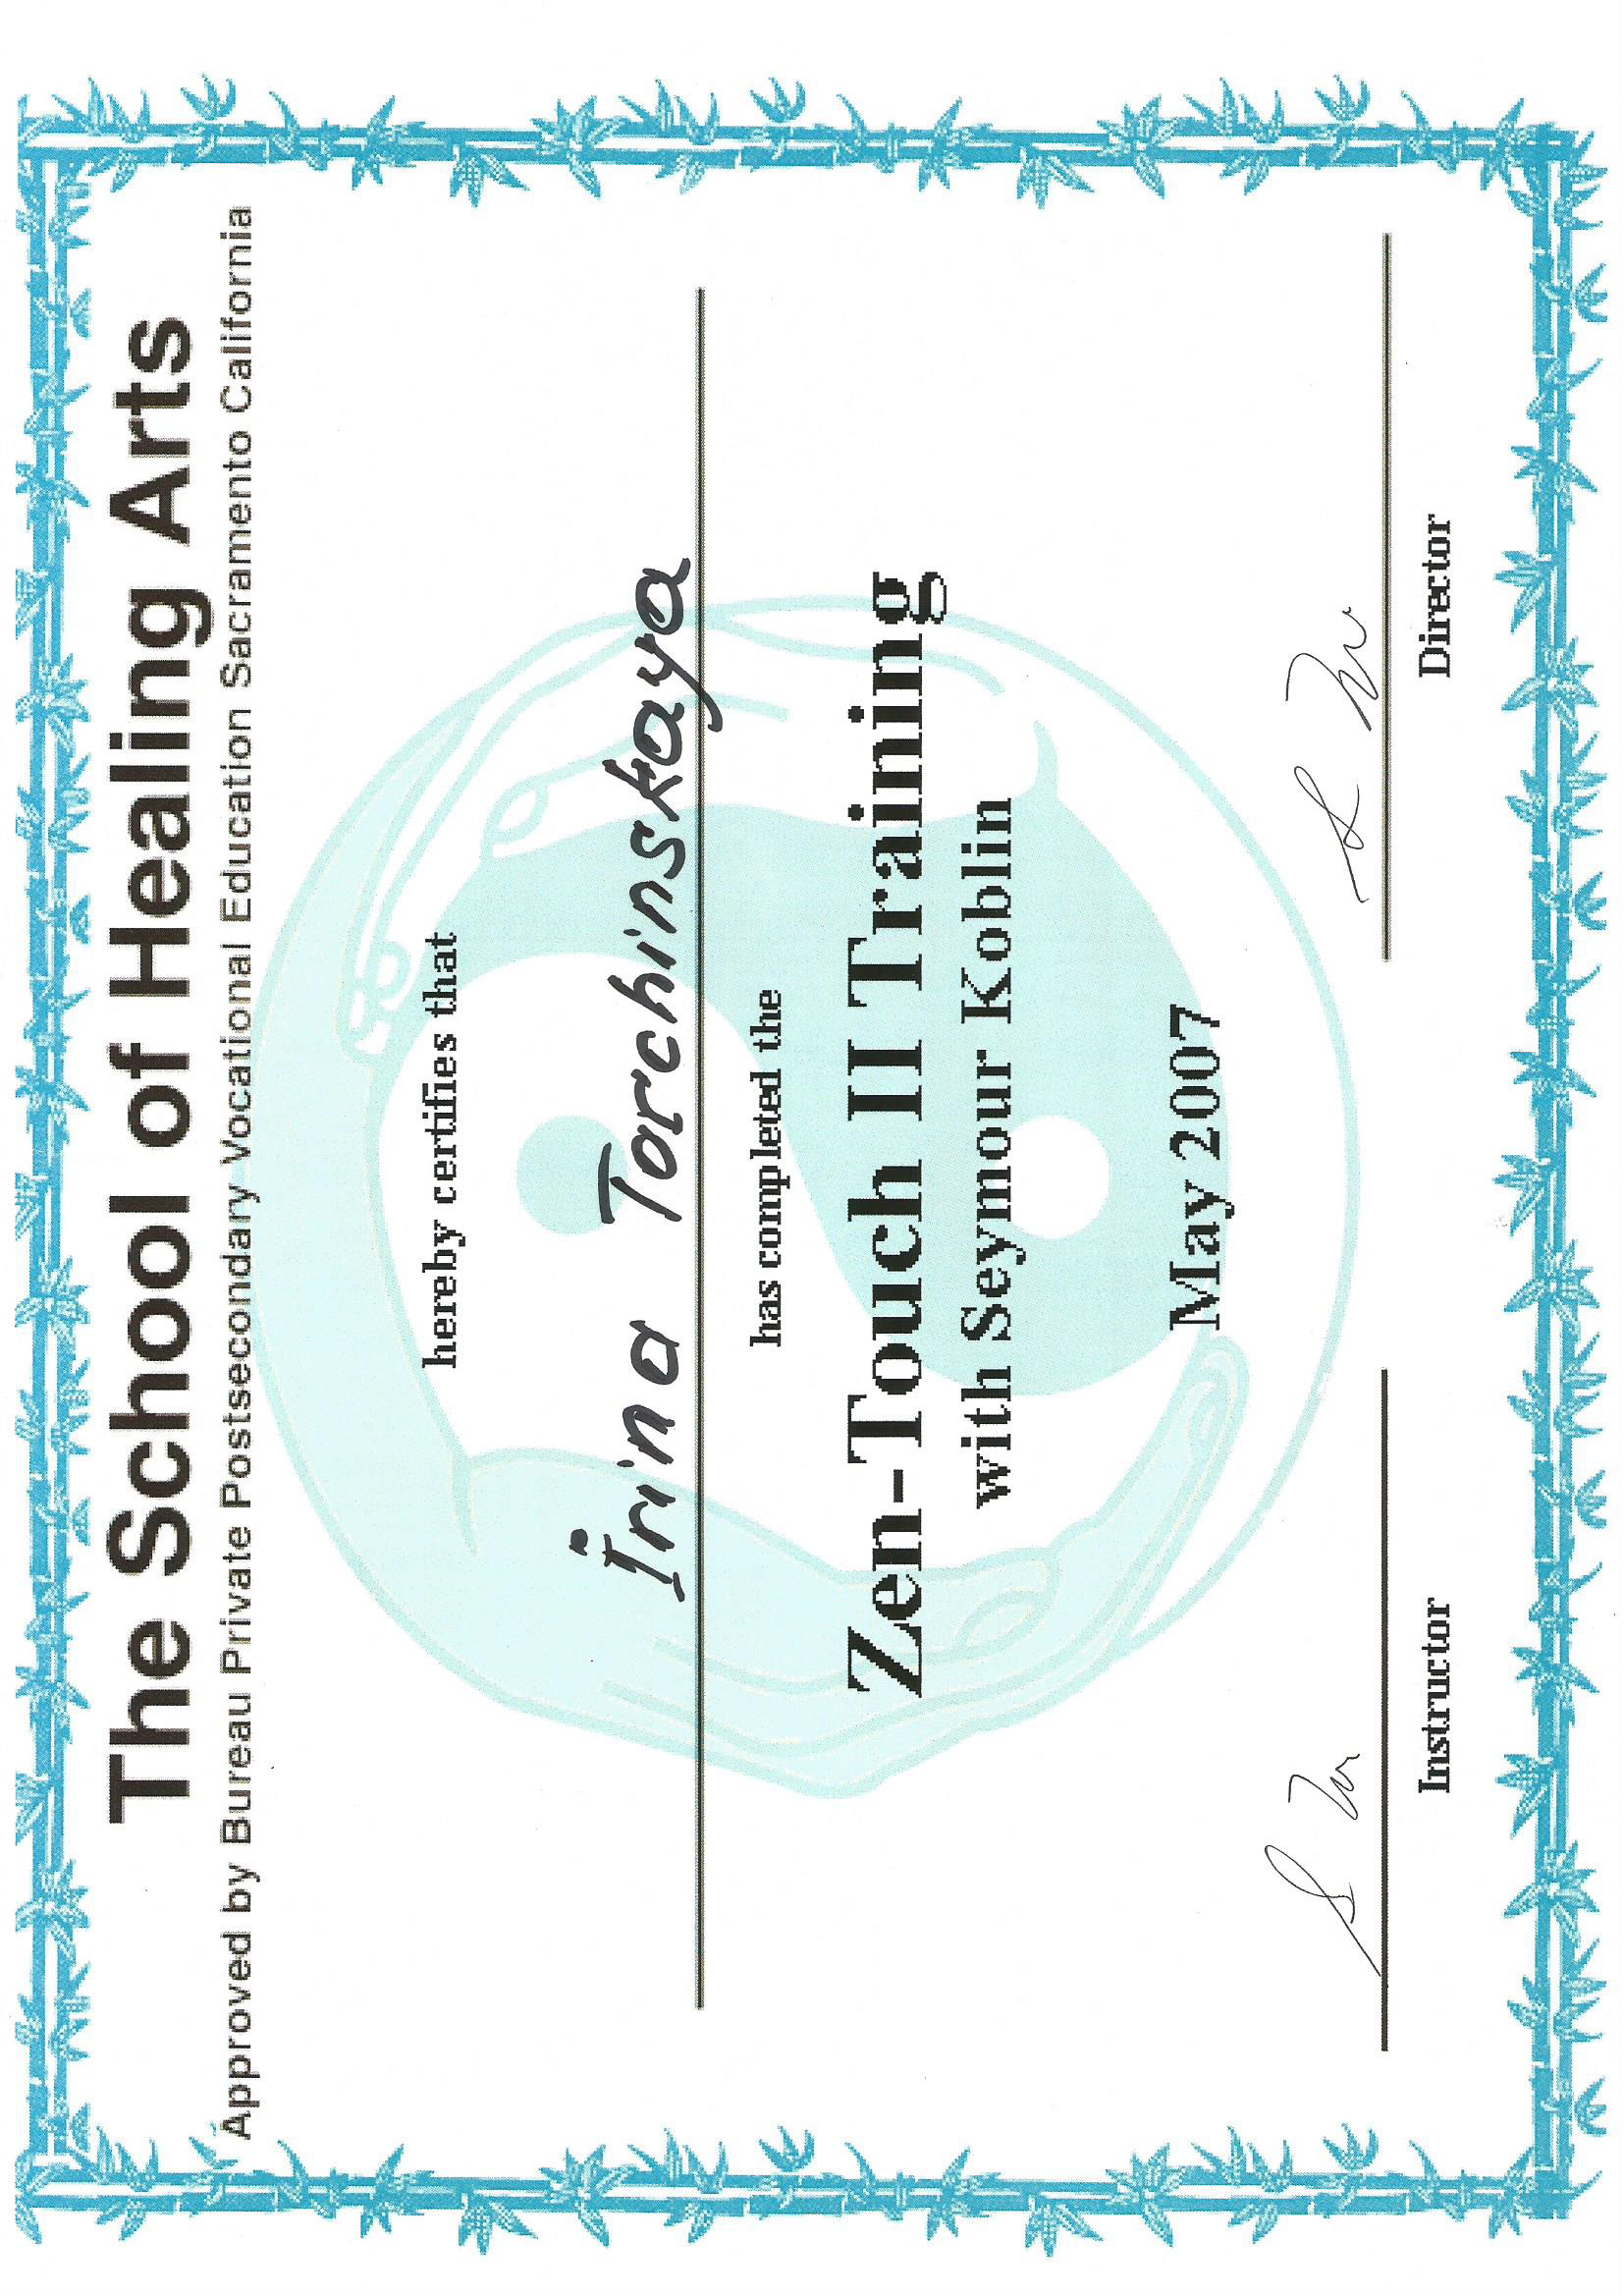 The School of Healing Arts
Approved by Bureau Private Postsecondary Vocational Education Sacramento California
hereby certifies that
Irina Torchinskaya
has completed the
Zen-Touch II Training
with Seymour Koblin
May 2007
Instructor
Director